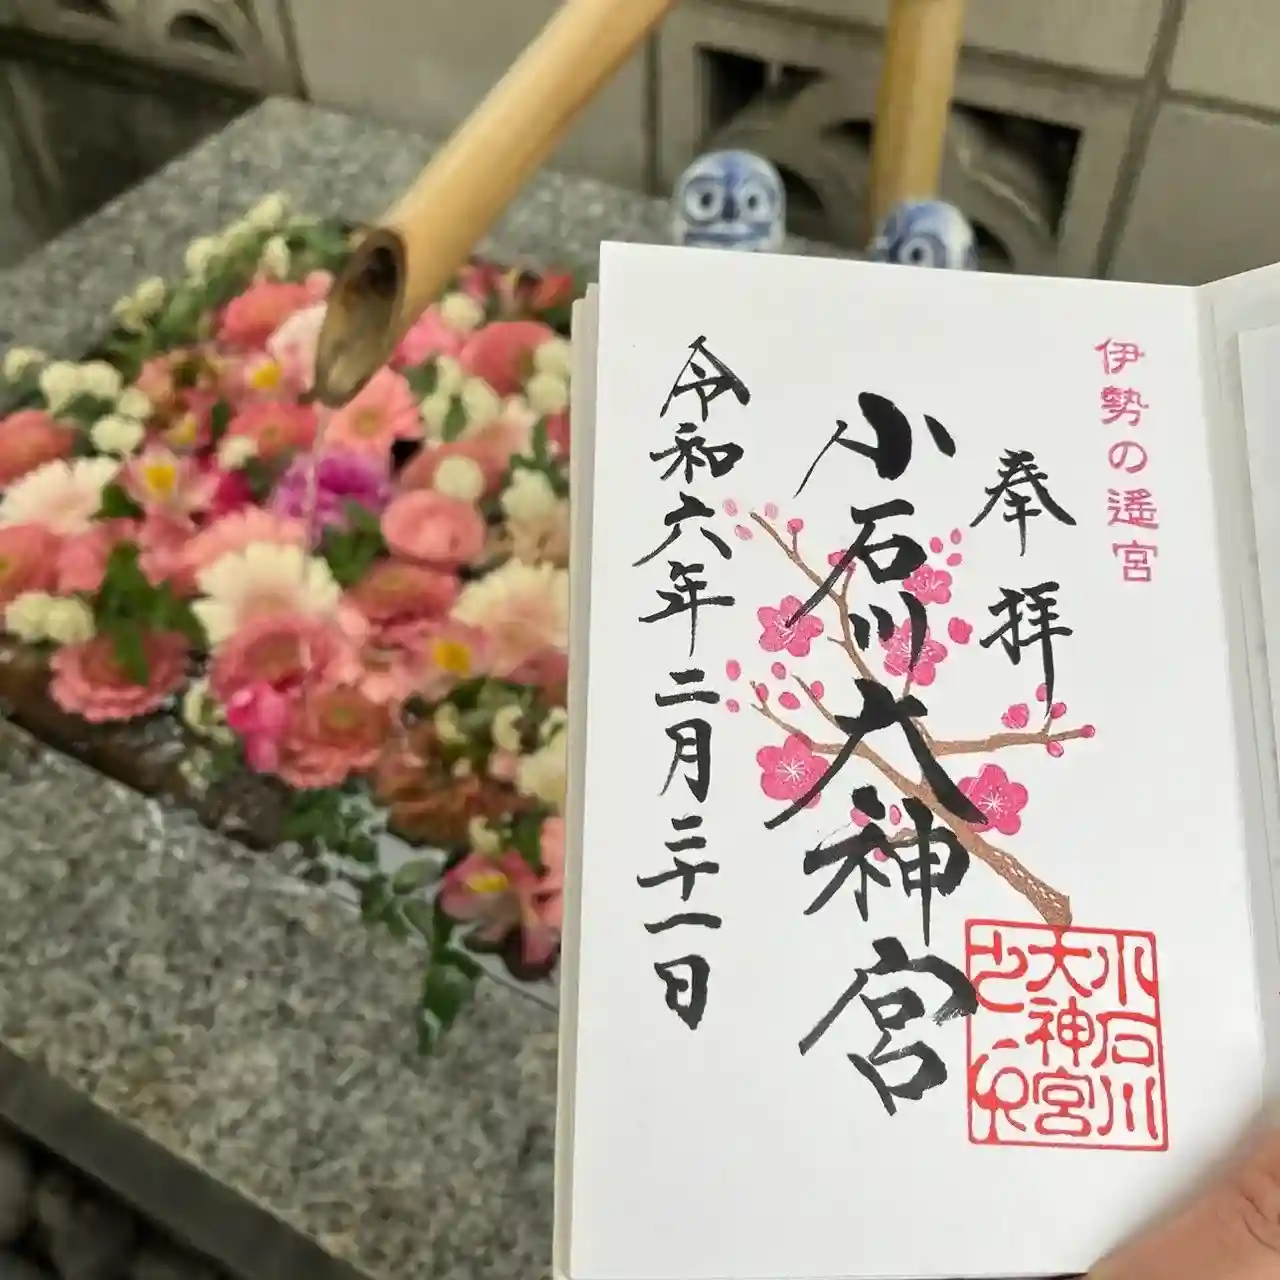 伊勢の遥宮
奉拝
小石川大神宮
令和六年二月二十一日
小石川
大神宮
之印